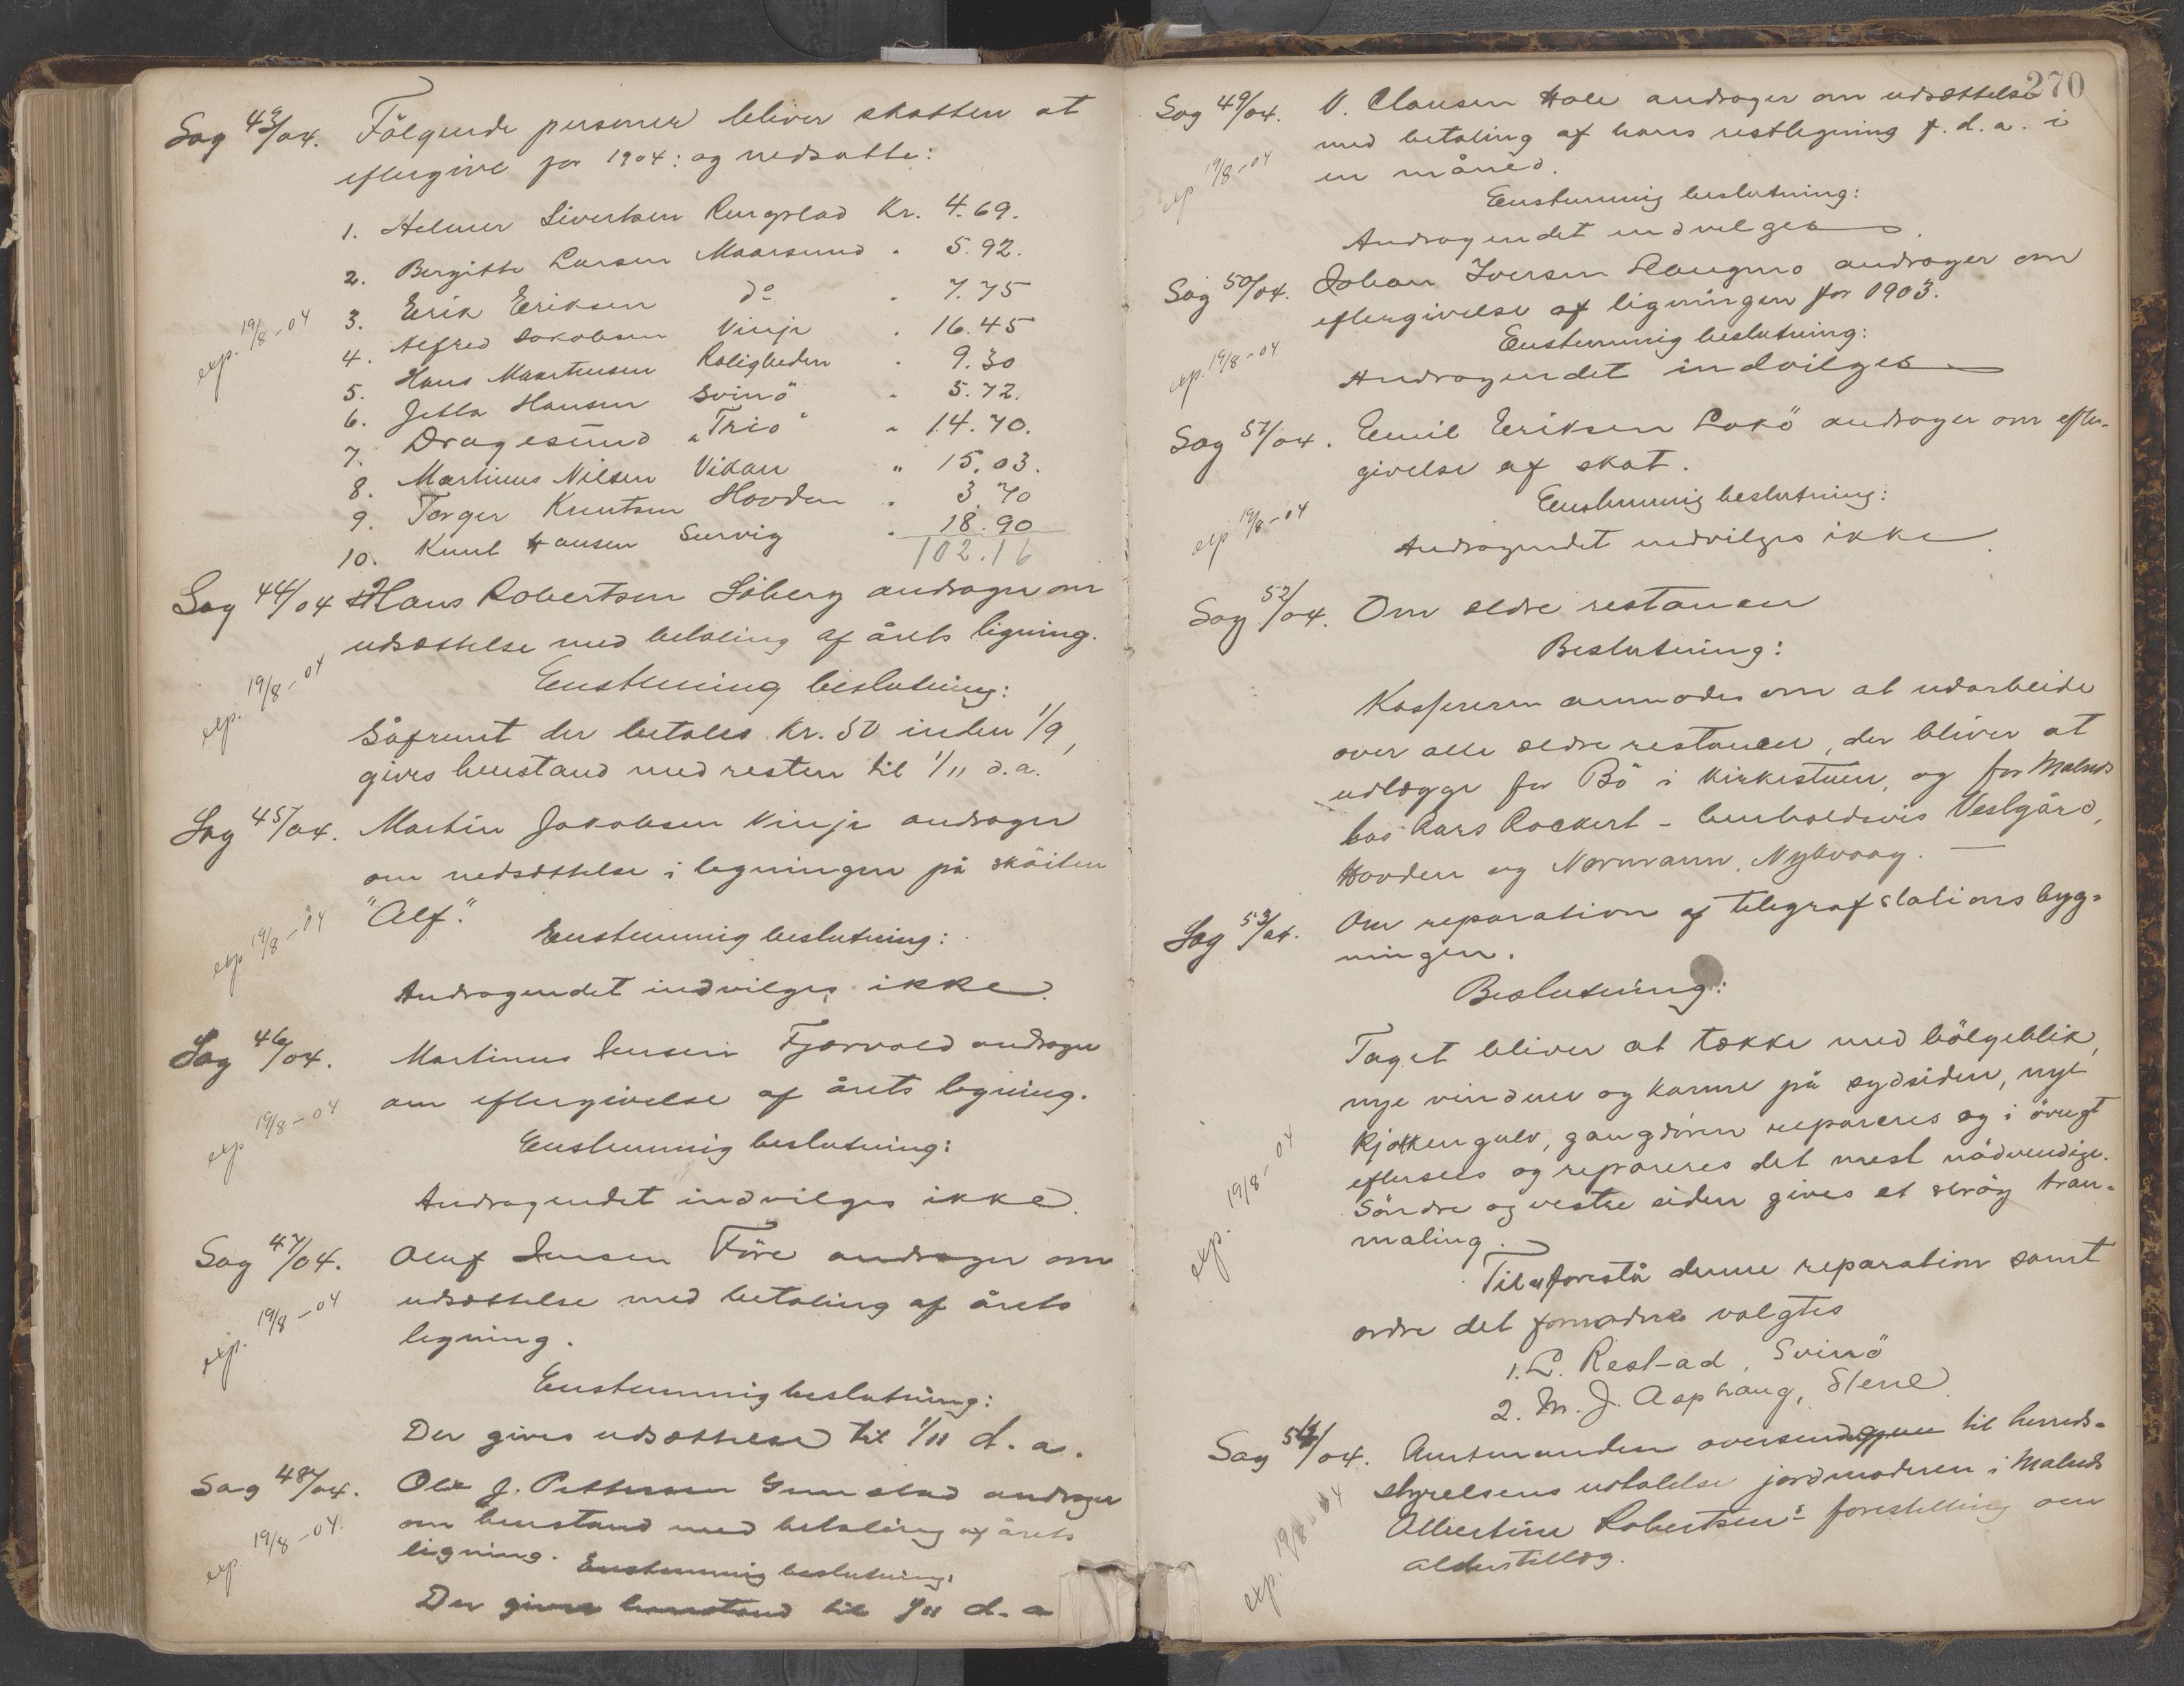 Sag 43/04. Følgende personer bliver skatten at
eftergive for 1904: og nedsatte:
1. Helmer Sivertsen Ringstad Kr. 4.69.
2. Bergitte Larsen Maarsund " 5.92.
exp. 19/8-04
3. Erik Eriksen do " 7.75
4. Alfred Jakobsen Vinje " 16.45
5. Hans Martinsen Roligheden " 9.30
6. Jetta Hansen Svinö " 5.72.
7. Dragesund "Trio" " 14.70.
8. Martinus Nilsen Vikan " 15.03.
9. Torger Knutsen Hovden " 3.70
10. Knut Hansen Survig " 18.90
102.16
Sag 44/04 Hans Robertsen Söberg andrager om
udsættelse med betaling af årets ligning.
exp. 19/8-04
Enstemmig beslutning:
Såfremt der betales Kr. 50 inden 1/9,
gives henstand med resten til 1/11 d.a.
Sag 45/04. Martin Jakobsen Vinje andrager
om nedsættelse i ligningen på sköiten
"Alf".
exp 19/8-04
Enstemmig beslutning:
Andragendet indvilges ikke.
Sag 46/04. Martinus Jensen Fjærvold andrager
om eftergivelse af årets ligning.
exp 19/8-04
Enstemmig beslutning:
Andragendet indvilges ikke.
Sag 47/04. Oluf Jensen Före andrager om
udsættelse med betaling af årets
exp. 19/8-04
ligning.
Enstemmig beslutning:
Der gives udsættelse til 1/11 d.a.
Sag 48/04. Ole J. Pettersen Guinstad andrager
om henstand med betaling af årets
exp. 19/8-04.
ligning. Enstemmig beslutning:
Der gives henstand til 1/11 d.a
270
Sag 49/04. V. Clausen Hole andrager om udsættelse
med betaling af hans restligning f.d.a. i
exp 19/8-04
en måned.
Enstemmig beslutning:
Andragendet indvilges.
Sag 50/04. Johan Iversen Haugmo andrager om
eftergivelse af ligningen for 1903.
exp. 19/8-04
Enstemmig beslutning:
Andragendet indvilges
Sag 51/04. Emil Eriksen Lokö andrager om efter-
givelse af skat.
exp 19/8-04
Enstemmig beslutning:
Andragendet indvilges ikke.
Sag 52/04. Om ældre restancer
Beslutning:
Kassereren anmodes om at udarbeide
over alle ældre restancer, der bliver at
udlægge for Bö i Kirkestuen, og for Malnes
hos Lars Rockert - henholdsvis Vestgård,
Hovden og Normann, Nykvaag.
Sag 53/04. Om reparation af telegrafstationsbyg-
ningen.
Beslutning:
Taget bliver at tække med bölgeblik,
nye vinduer og karme på sydsiden, nyt
kjøkkengulv, gangdören repareres og i övrigt
exp. 19/8-04
eftersees og repareres det mest nödvendige.
Söndre og vestre siden gives et strög tran-
maling.
Til at forestå denne reparation samt
ordre det fornødne valgtes
1. L. Rest-ad, Svinö
2. M. J. Asphaug, Stene.
Sag 54/04. Amtmanden oversender til herreds-
styrelsens udtalelse jordmoderen i Malnes
exp. 19/8-04
Albertine Robertsens forestilling om
alderstillæg.